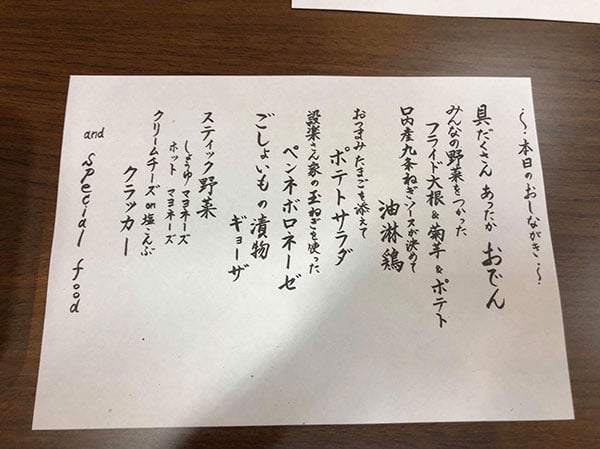 〜・本日のおしながき・〜
具だくさん あったか おでん
みんなの野菜をつかった
フライド大根&菊芋&ポテト
口内産九条ねぎソースが決めて
油淋鶏
おつまみたまごを添えて
ポテトサラダ
設楽さん家の玉ねぎを使った
ペンネボロネーゼ
ごしょいもの漬物
ギョーザ
スティック野菜
しょうゆマヨネーズ
ホットマヨネーズ
クリームチーズon塩こんぶ
クラッカー
and special food